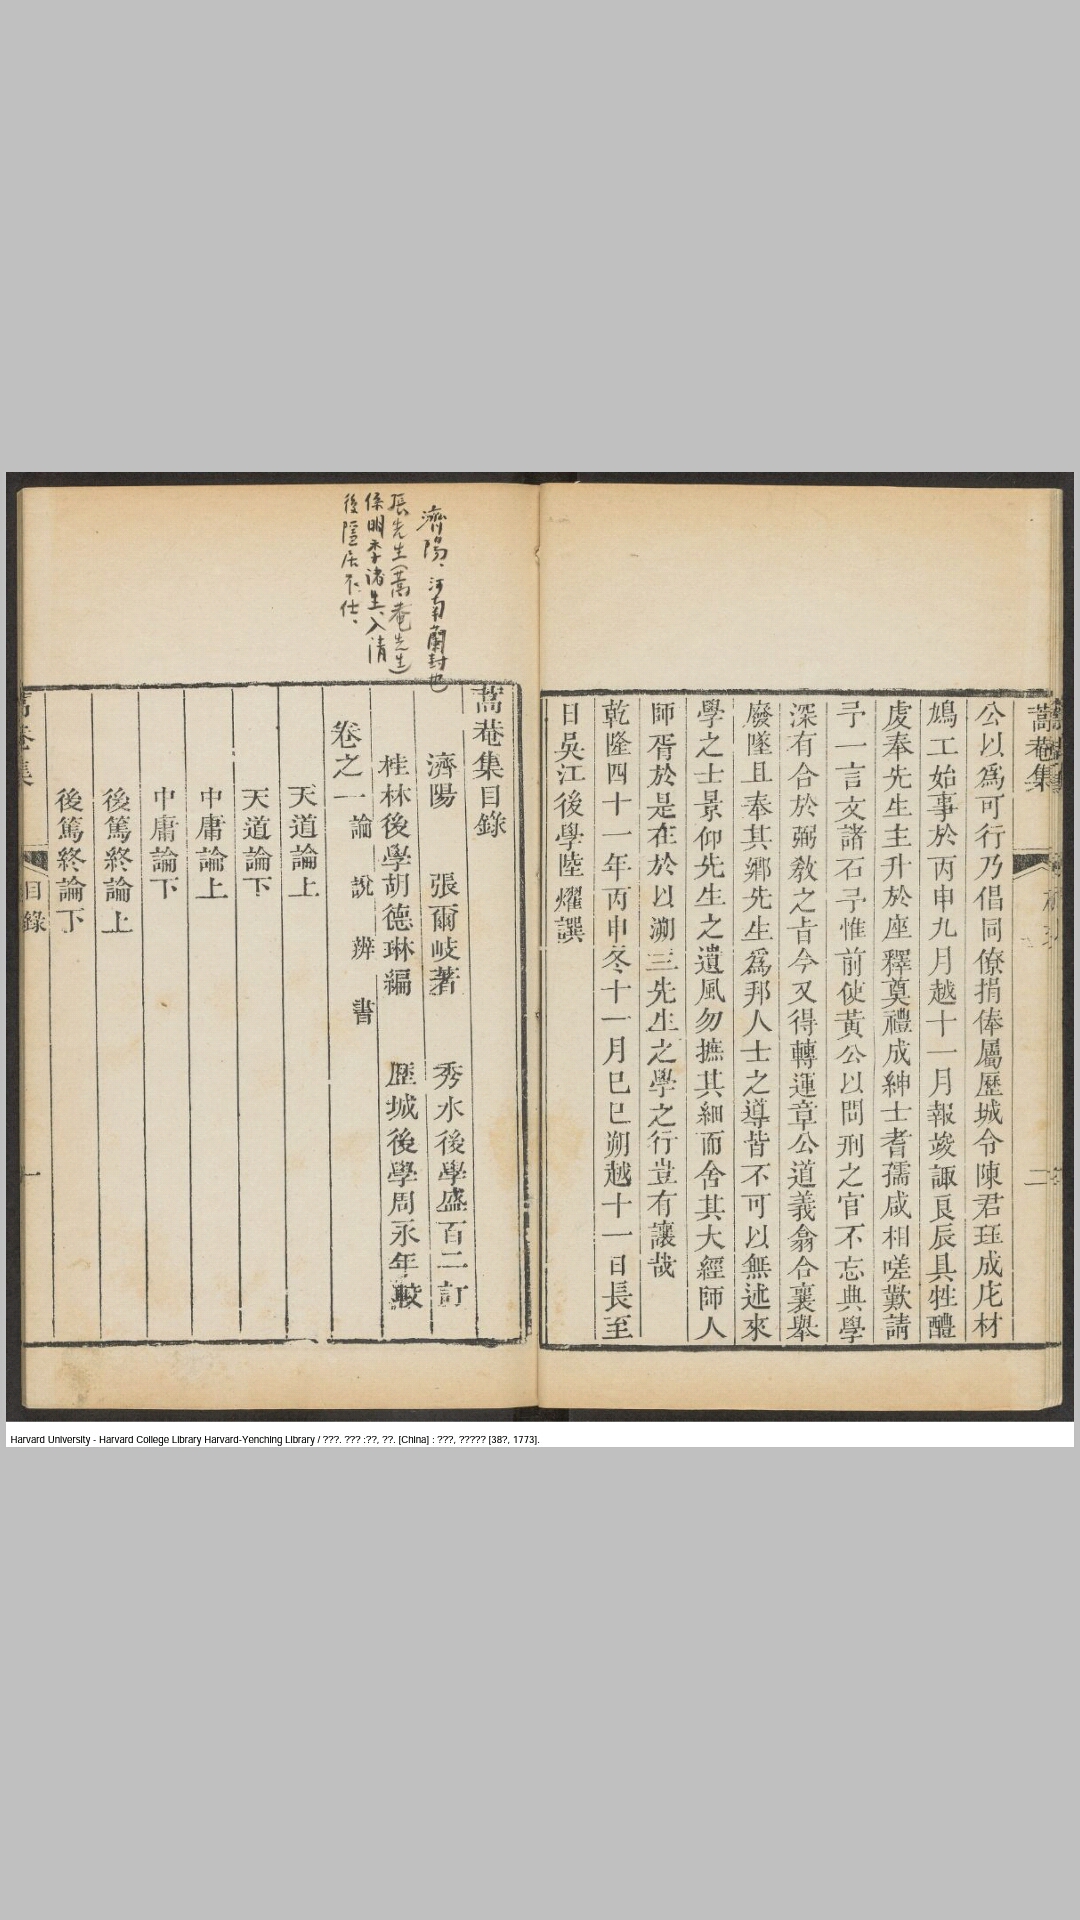 蒿菴集
二
公以爲可行乃倡同僚捐俸屬歷城令陳君珏成庀材
鳩工始事於丙申九月越十一月報竣諏良辰具牲醴
虔奉先生主升於座釋奠禮成紳士耆孺咸相嗟歎請
予一言文諸石予惟前使黃公以問刑之官不忘典學
深有合於弼敎之旨今又得轉運章公道義翕合襄舉
廢墜且奉其鄉先生爲邦人士之導皆不可以無述來
學之士景仰先生之遺風勿摭其細而舍其大經師人
師胥於是在於以溯三先生之學之行豈有讓哉
乾隆四十一年丙申冬十一月巳巳朔越十一日長至
日吳江後學陸燿譔
濟陽、河南蘭封也
張先生(蒿菴先生)
係明季諸生、入清
後隱居不仕、
蒿菴集目錄
濟陽 張爾岐著 秀水後學盛百二訂
桂林後學胡德琳編 歷城後學周永年較
卷之一 論 說 辨 書
天道論上
天道論下
中庸論上
中庸論下
後篤終論上
後篤終論下
目錄
一
Harvard University - Harvard College Library Harvard-Yenching Library / ???. ??? :??, ??. [China] : ???, ????? [38?, 1773].